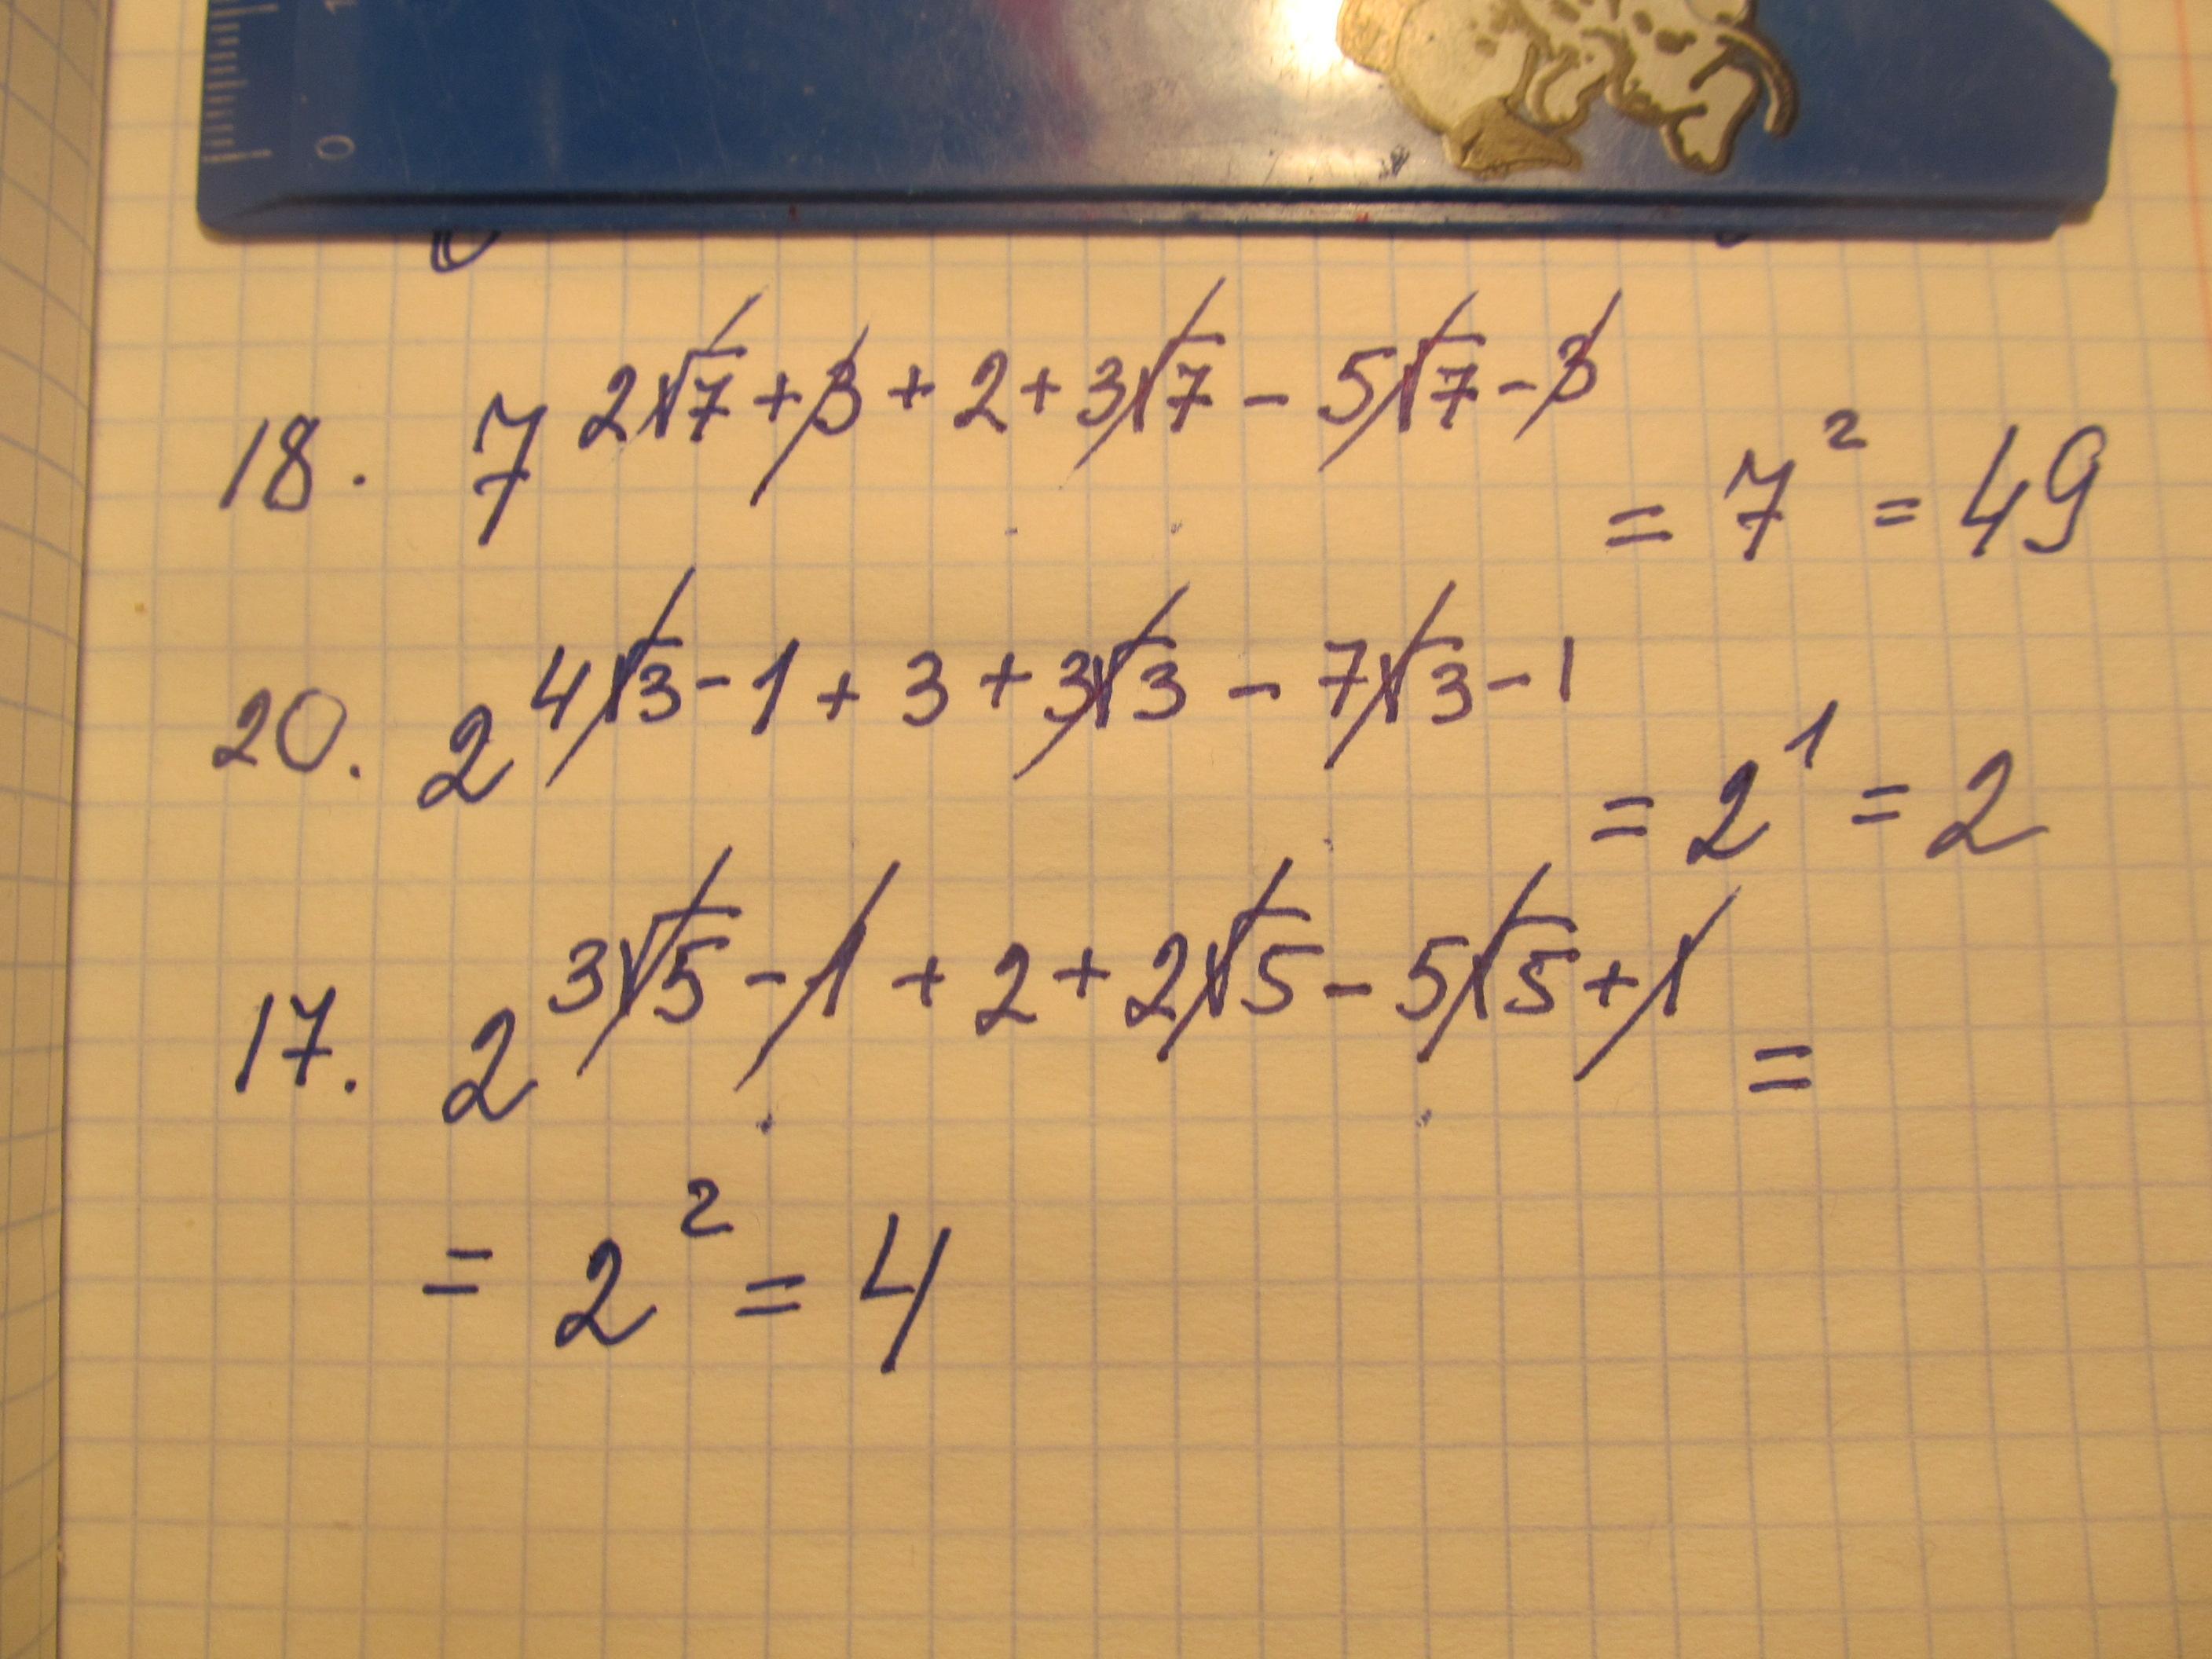 0 1
18. 7^{2√7+3+2+3√7-5√7-3} = 7² = 49
20. 2^{4√3-1+3+3√3-7√3-1} = 2¹ = 2
17. 2^{3√5-1+2+2√5-5√5+1} =
= 2² = 4